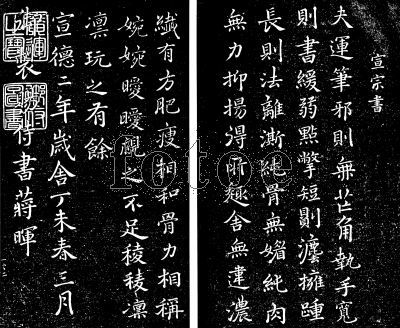 宣宗書
夫運筆邪則無芒角執手寬
則書緩弱點撆短則灋擁踵
長則法離澌純骨無媚純肉
無力抑揚得所趣舍無違濃
纖有方肥瘦相和骨力相稱
婉婉曖曖視之不足稜稜凜
凜玩之有餘
宣德二年歲舍丁未春三月
侍書蔣暉
fotoe